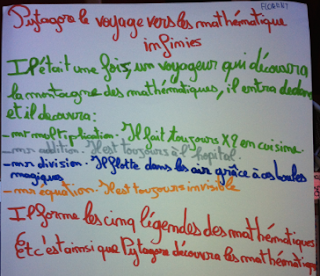 FLORENT
Pytagore le voyage vers les mathématique
infinies
Il était une fois, un voyageur qui découvra
la montagne des mathématiques, il entra dedans
et il découvra:
- mr multiplication. Il fait toujours X2 en cuisine.
- mr addition. Il est toujours à l'hopital.
- mr division. Il flotte dans les air grâce à ces boules
magiques
- mr équation. Il est toujours invisible
Il forme les cinq légendes des mathématiques
Et c'est ainsi que Pytagore découvra les mathématique